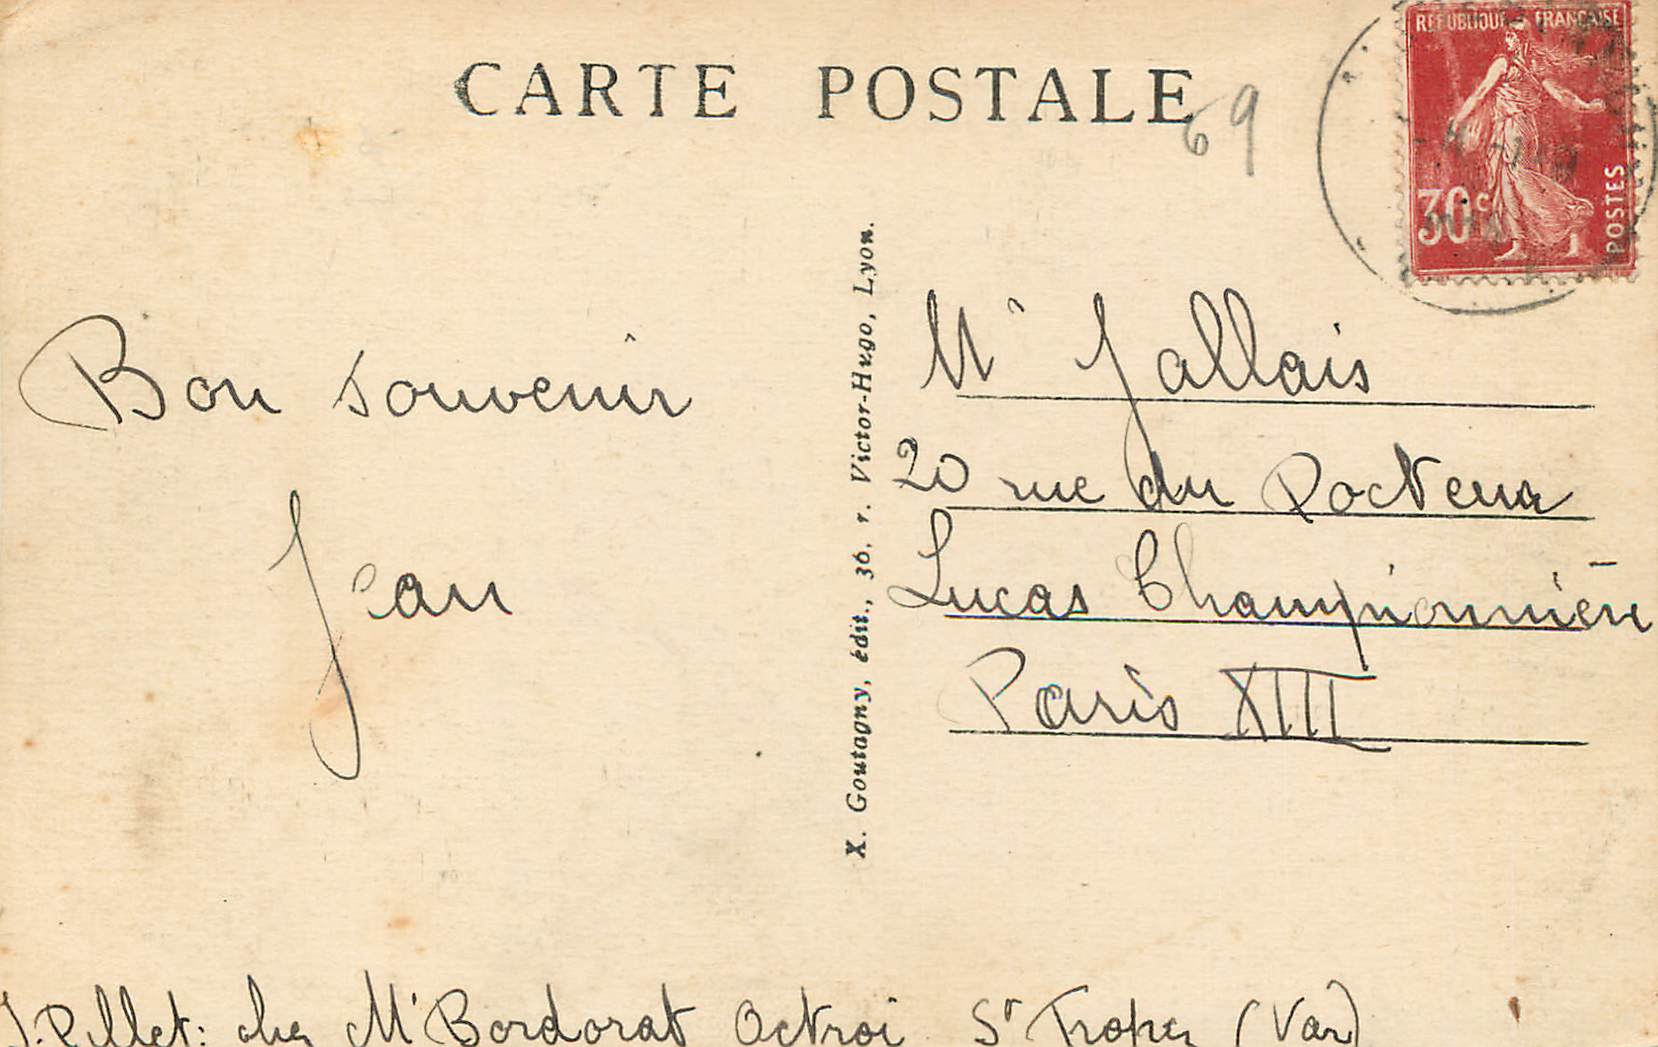 CARTE POSTALE
69
RÉPUBLIQUE FRANÇAISE
30c
POSTES
Bon souvenir
Jean
X. Goutagny, édit., 36, r. Victor-Hugo, Lyon.
Mr Jallais
20 rue du Docteur
Lucas Championnière
Paris XIII
J. Pillet: chez Mr Bordorat Octroi St Tropez (Var)